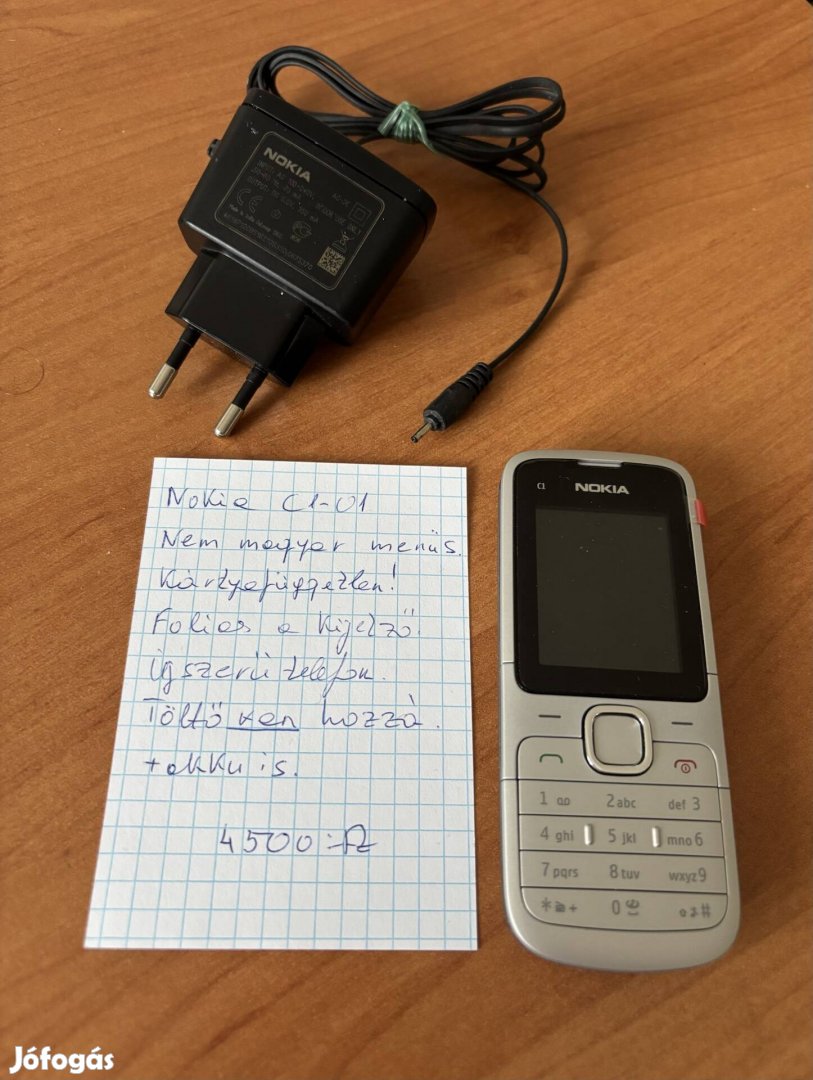 NOKIA
AC-3E
CE
Nokia C1-01
Nem magyar menüs.
Kártyafüggetlen!
Foliás a kijelző.
Újszerű telefon.
Töltő van hozzá.
+akku is.
4500:-Ft
C1 NOKIA
1 2abc def 3
4 ghi 5 jkl mno 6
7 pqrs 8 tuv wxyz 9
* + 0 #
Jófogás